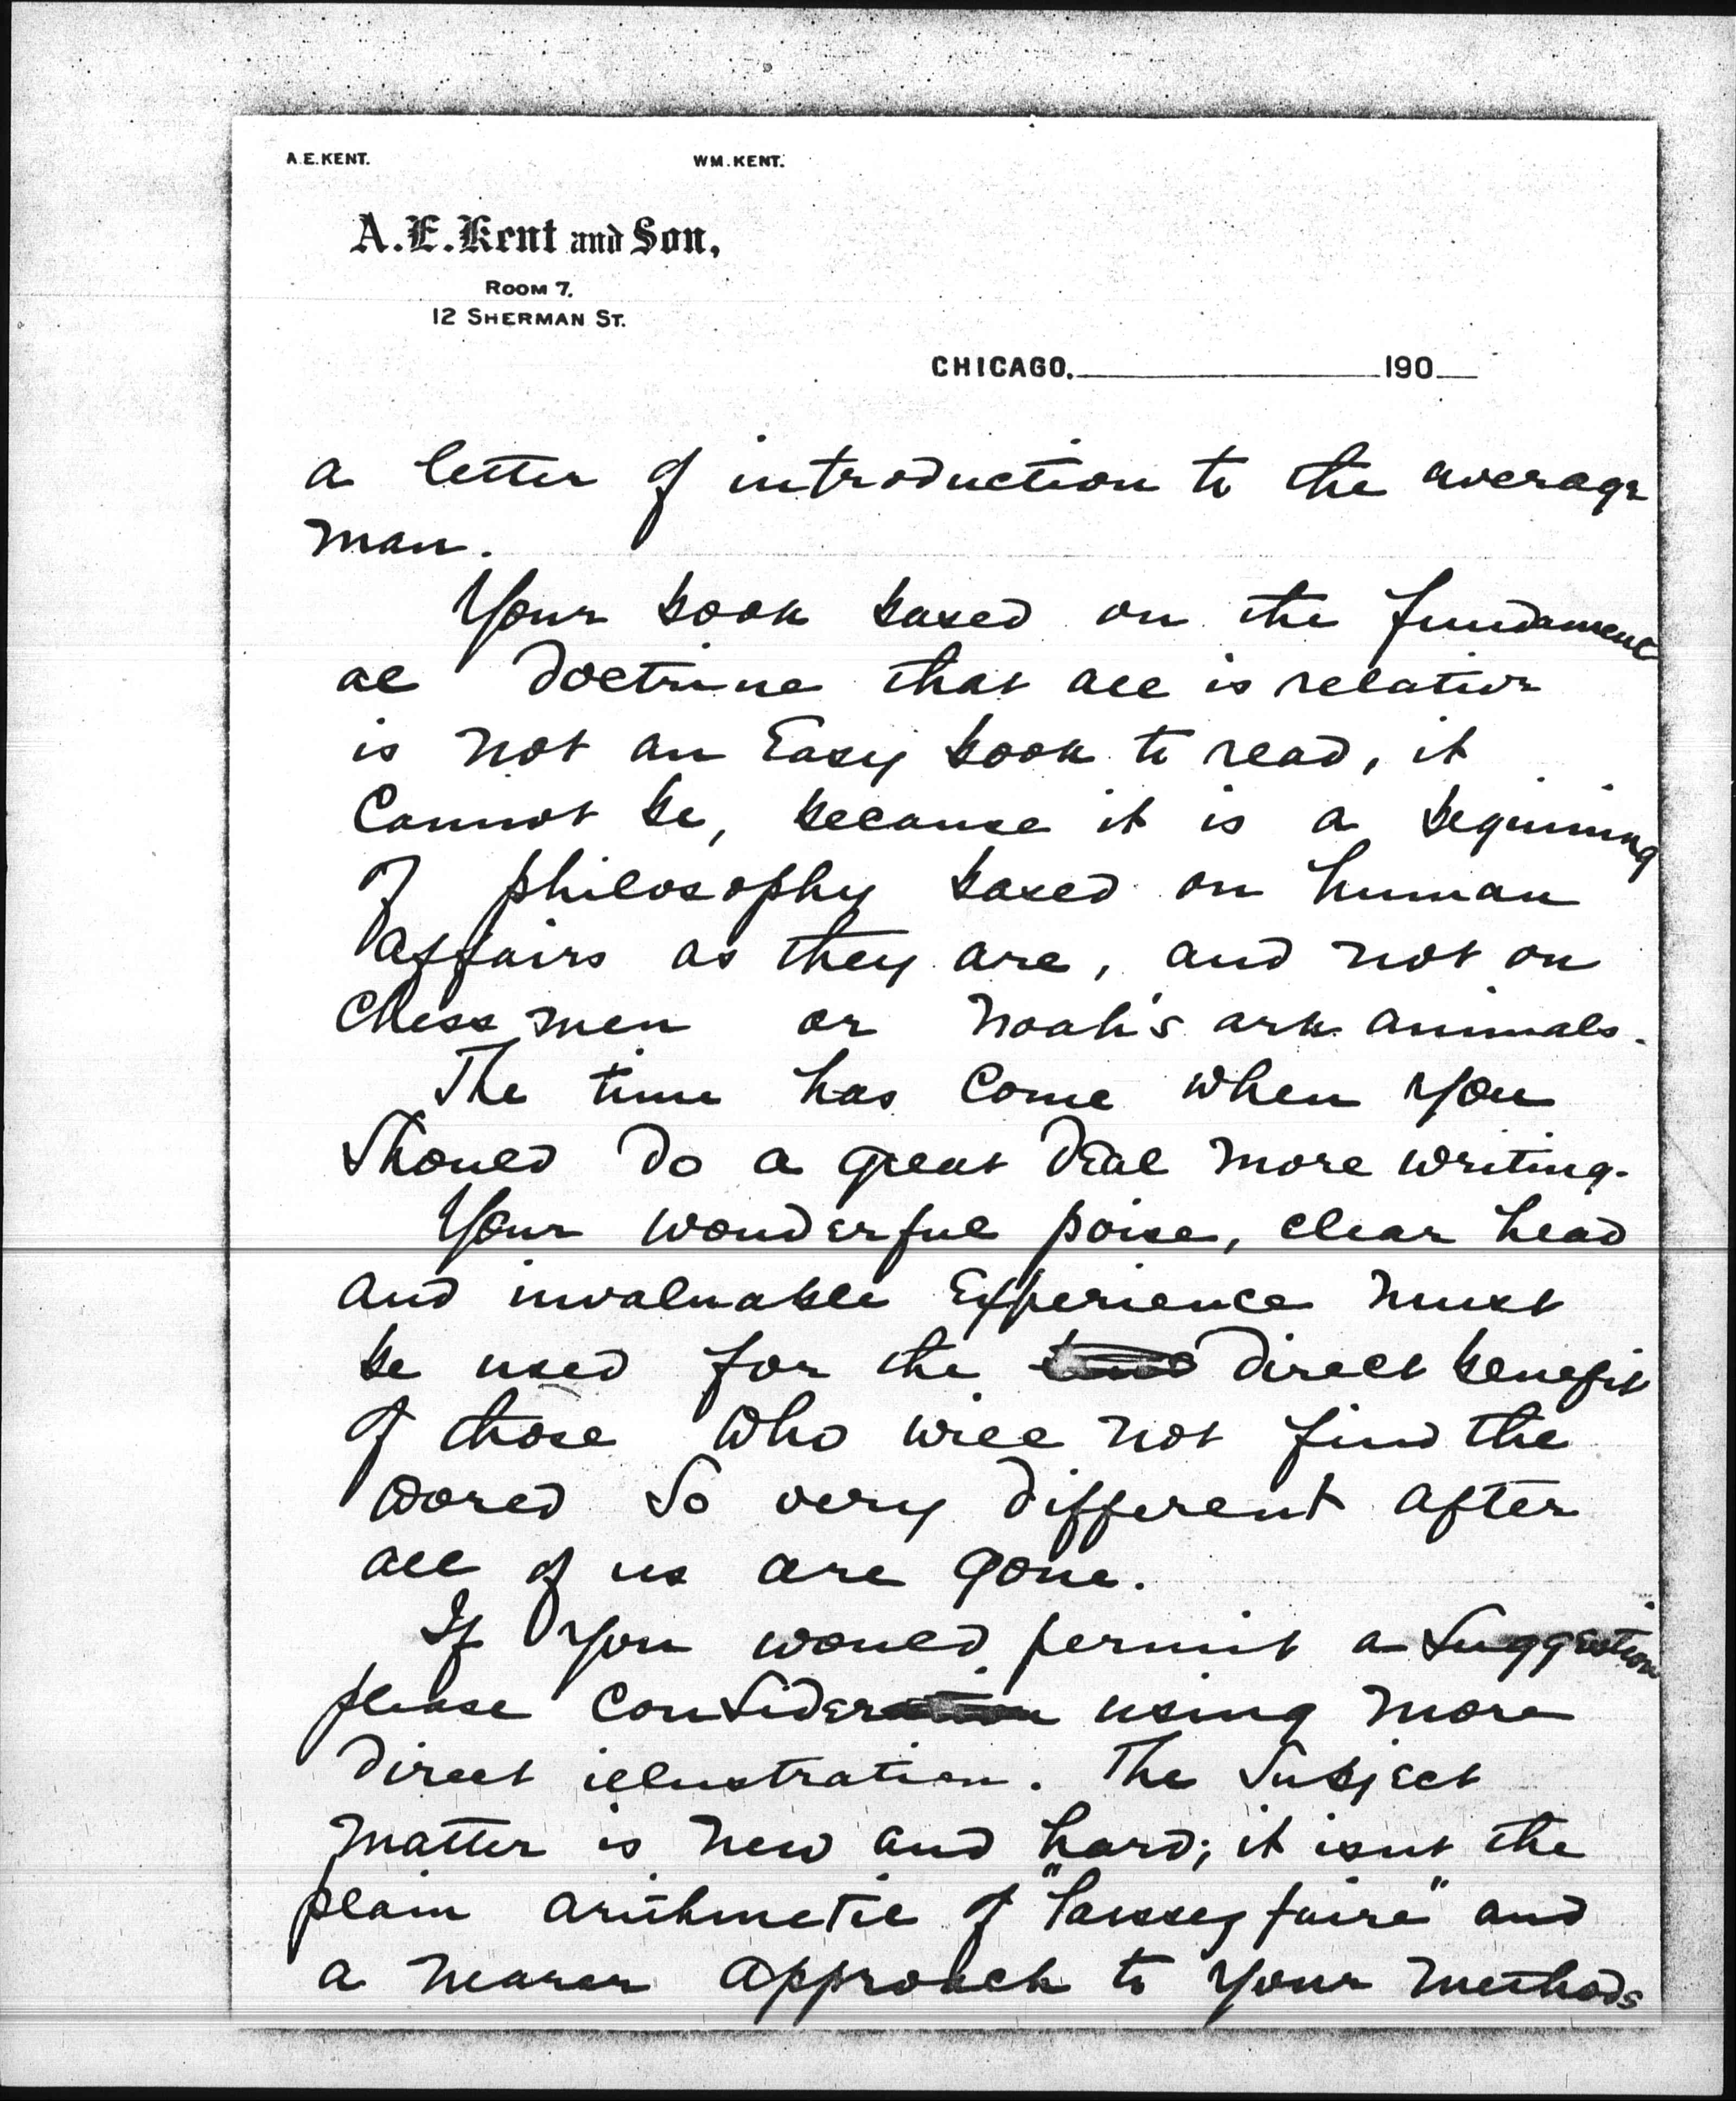 A.E.KENT. WM.KENT.
A.E.Kent and Son,
ROOM 7,
12 SHERMAN ST.
CHICAGO, 190
a letter of introduction to the average
man.
Your book based on the fundament
al doctrine that all is relative
is not an easy book to read, it
cannot be, because it is a begining
of philosophy based on human
affairs as they are, and not on
chess men or Noah's ark animals.
The time has come when you
should do a great deal more writing.
Your wonderful poise, clear head
and invaluable experience must
be used for the direct benefit
of those who will not find the
world so very different after
all of us are gone.
If you would permit a suggestion
please consider using more
direct illustration. The subject
matter is new and hard; it isnt the
plain arithmetic of "laissez faire" and
a nearer approach to your methods